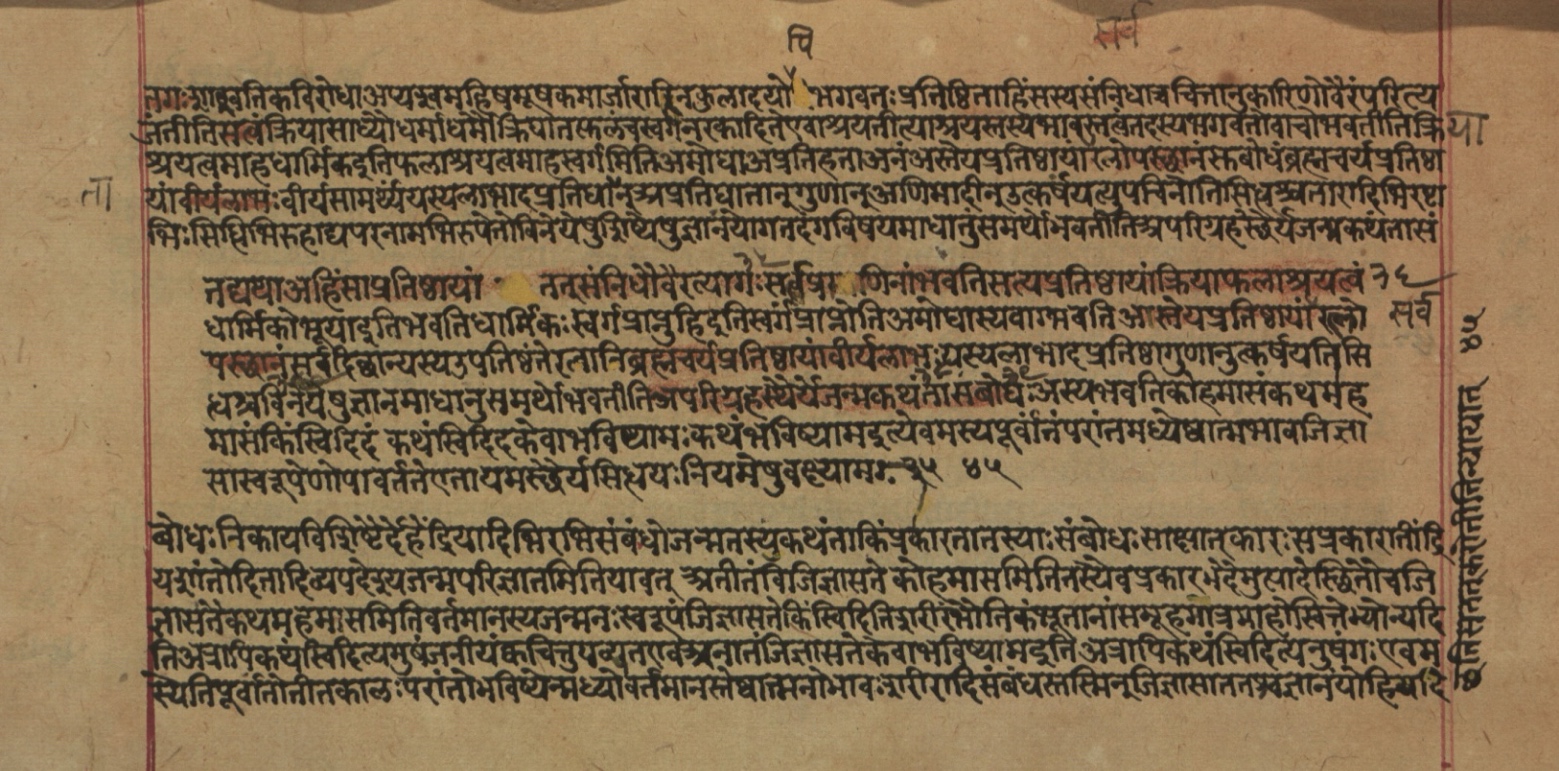 पि
सर्व
तगःशाश्वतिकविरोधाअप्यश्वमहिषमूषकमार्जाराहिनकुलादयो भगवतःप्रतिष्ठिताहिंसस्यसंनिधात्तच्चित्तानुकारिणोवैरंपरित्य
जंतीतिसत्यंक्रियासाध्यौधर्माधर्मौक्रियातत्फलंचस्वर्गनरकादितेएवाश्रयतीत्याश्रयस्तस्यभावस्तत्वंतदस्यभगवतोवाचोभवतीतिक्रि या
श्रयत्वमाहधार्मिकइतिफलाश्रयत्वमाहस्वर्गमितिअमोघाअप्रतिहताअनंअस्तेयप्रतिष्ठायांरत्नोपस्थानंस्तबोधंब्रह्मचर्यप्रतिष्ठा
ता
यांवीर्यलाभःवीर्यसामर्थ्यंयस्यलाभादप्रतिघानुअप्रतिघातानुगुणानुअणिमादीनुउत्कर्षयत्युपचिनोतिसिद्धश्चतारादिभिरष्टा
भिःसिद्धिभिरूहाद्यपरनामभिरुपेतोविनेयेषुशिष्येषुज्ञानंयोगतदंगविषयमाधातुंसमर्थोभवतीतिअपरिग्रहस्थैर्यजन्मकथंतासं
तद्यथाअहिंसाप्रतिष्ठायां तत्संनिधौवैरत्यागःसर्वप्राणिनांभवतिसत्यप्रतिष्ठायांक्रियाफलाश्रयत्वं ३६
धार्मिकोभूयाइतिभवतिधार्मिकःस्वर्गंप्राप्नुहिइतिस्वर्गंप्राप्नोतिअमोघास्यवाग्भवतिअस्तेयप्रतिष्ठायांरत्नो सर्व
पस्थानंसर्वदिक्स्थान्यस्यउपतिष्ठंतेरत्नानिब्रह्मचर्यप्रतिष्ठायांवीर्यलाभःयस्यलाभादप्रतिष्ठागुणानुत्कर्षयतिसि
द्धश्चविनेयेषुज्ञानमाधातुसमर्थोभवतीतिअपरिग्रहस्थैर्येजन्मकथंतासंबोधःअस्यभवतिकोहमासंकथमह
मासंकिंस्विदिदं कथंस्विदिदंकेवाभविष्यामःकथंभविष्यामइत्येवमस्यपूर्वांतंपरांतमध्येष्वात्मभावजिज्ञा
सास्वरूपेणोपावर्ततेएतायमस्थैर्यसिद्धयःनियमेषुवक्ष्यामः ३५ ४५
बोधःनिकायविशिष्टैर्देहेंद्रियादिभिरभिसंबंधोजन्मतस्यकथंताकिंप्रकारतातस्याःसंबोधःसाक्षात्कारःसप्रकारातींद्रि
यशांतोदिताव्यपदेश्यजन्मपरिज्ञानमितियावत् अतीतंजिज्ञासते कोहमासमितितस्यैवप्रकारभेदमुत्पादेस्थितौचजि
ज्ञासतेकथमहमासमितिवर्तमानस्यजन्मनःस्वरूपंजिज्ञासतेकिंस्विदितिशरीरंभौतिकंभूतानांसमूहमात्रमाहोस्वित्तेभ्योन्यदि
तिअत्रापिकथंस्विदित्यनुषंजनीयंक्वचित्तुपठ्यतएवअनागतंजिज्ञासतेकेवाभविष्यामइतिअत्रापिकथंस्विदित्यनुषंगःएवम
स्येतिपूर्वांतोतीतकालःपरांतोभविष्यन्मध्योवर्तमानस्तेष्वात्मनोभावःशरीरादिसंबंधस्तस्मिनुजिज्ञासाततश्चज्ञानंयोहियदि